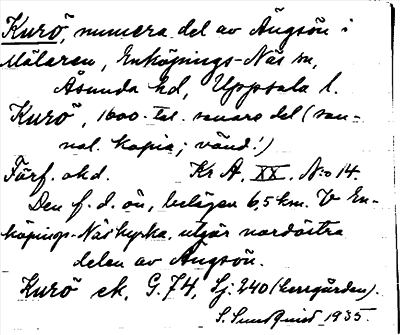 Kurö, numera del av Ängsön i
Mälaren, Enköpings-Näs sn,
Åsunda hd, Uppsala l.
Kurö, 1600-tal. senare del (sen-
nal. kopia; vänd!)
Förf. okd. Kr A. XX. N:o 14.
Den f. d. ön, belägen 6,5 km. V En-
köpings-Näs kyrka, utgör nordöstra
delen av Ängsön.
Kurö ek. G. 74, Lj. 240 (herrgården).
S. Sundquist 1935.